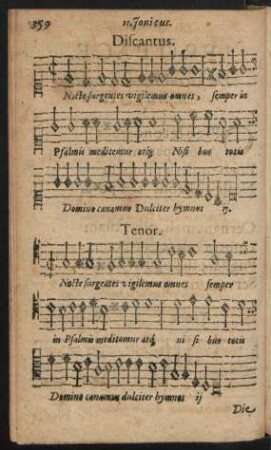 359 11. Jonicus.
Discantus.
Nocte surgentes vigilemus omnes, semper in
Psalmis meditemur atq; Nisi bus totis
Domino canamus Dulciter hymnos ij.
Tenor.
Nocte surgentes vigilemus omnes semper
in Psalmis meditemur atq; ni si bus totis
Domino canamus dulciter hymnos ij
Die